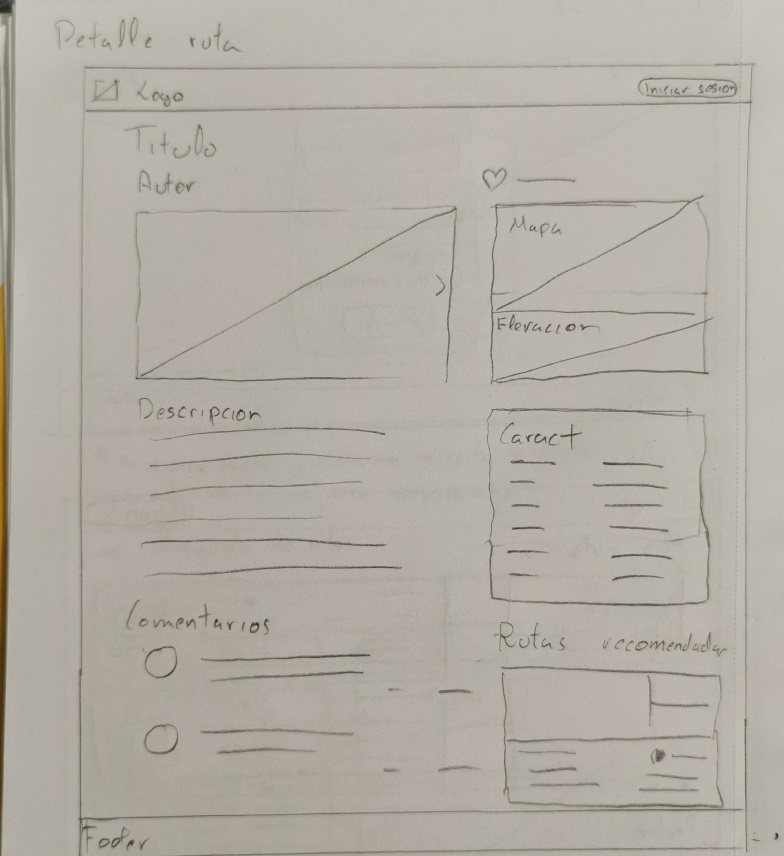 Detalle ruta
Logo
Iniciar sesion
Titulo
Autor
Mapa
Elevacion
Descripcion
Caract
Comentarios
Rutas recomendadas
Footer